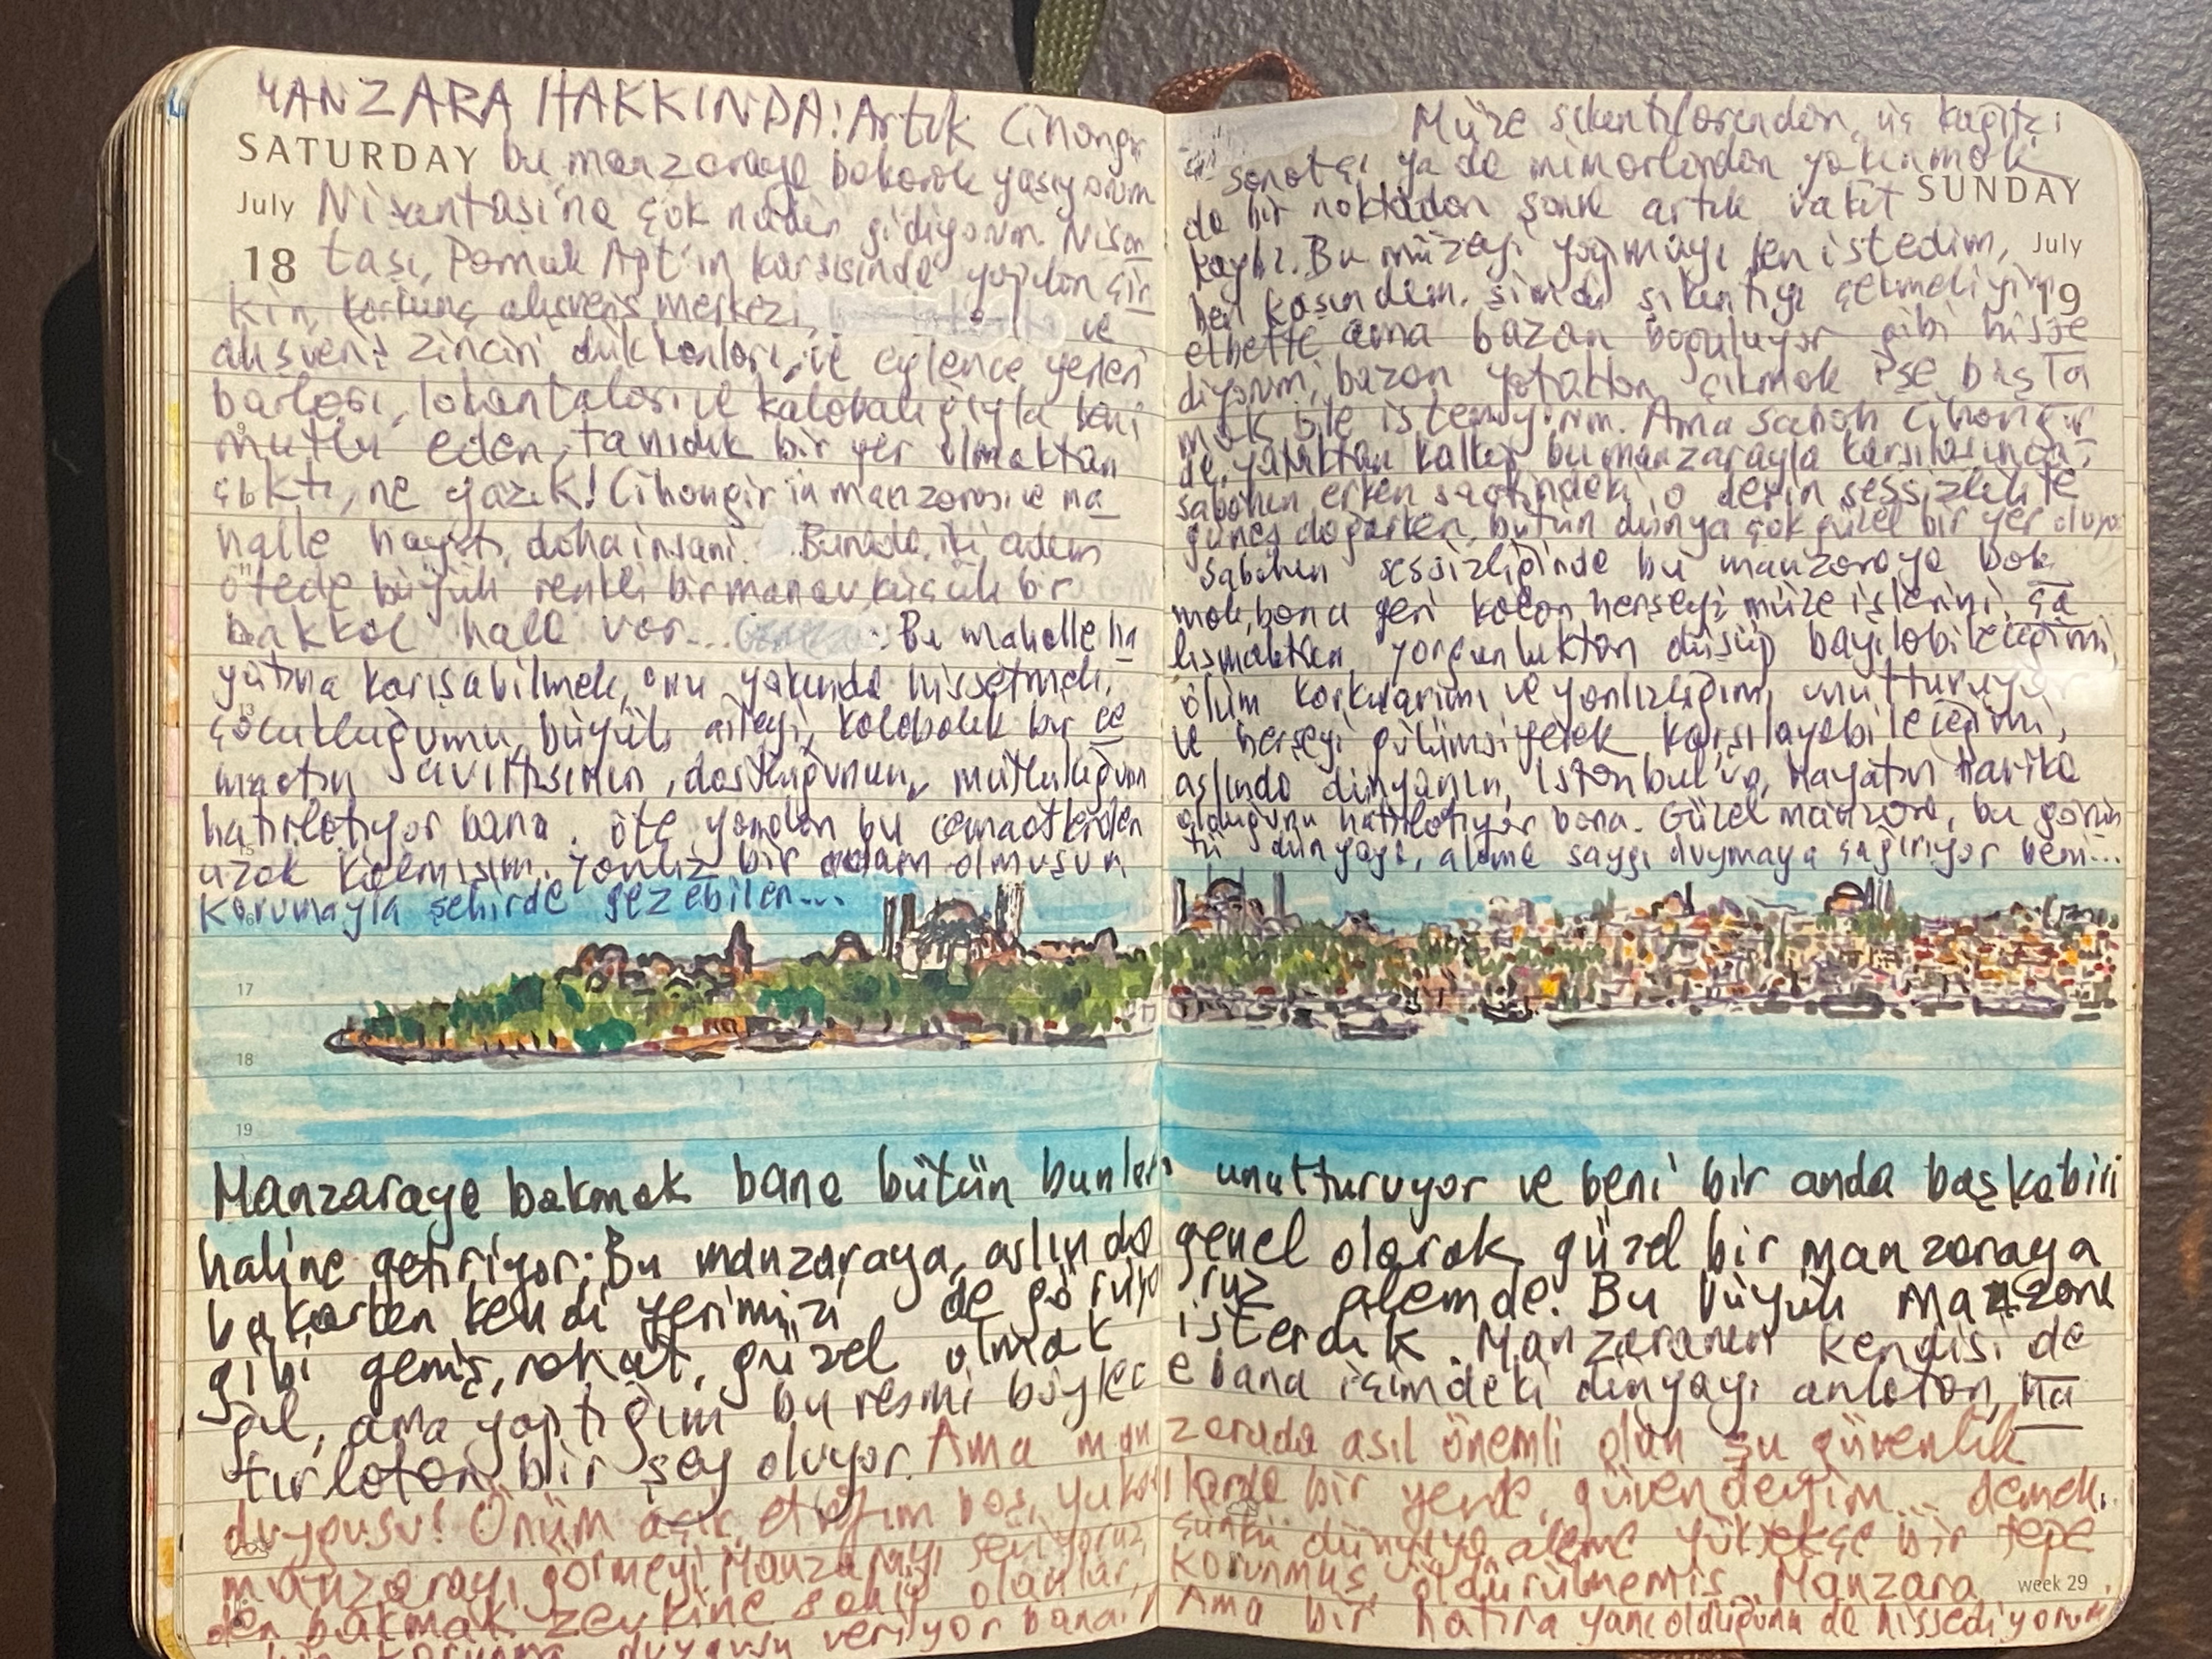 MANZARA HAKKINDA: Artık Cihangir
SATURDAY bu manzaraya bakarak yaşıyorum
July Nişantaşı'na çok nadir gidiyorum. Nişan
18 taşı, Pamuk Apt'ın karşısında yapılan çir
kin, korkunç alışveriş merkezi, ve
alışveriş zinciri dükkanları, ve eğlence yerleri
barları, lokantaları ve kalabalığıyla beni
9
mutlu eden, tanıdık bir yer olmaktan
çıktı, ne yazık! Cihangir'in manzarası ve ma
halle hayatı, daha insani. Burada, iki adım
11
ötede büyük renkli bir manav, küçük bir
bakkal hala var... Bu mahalle ha
yatına karışabilmek, onu yakında hissetmek,
13
çocukluğumu, büyük aileyi, kalabalık bir ce
maatın, dostluğunun, mutluluğun
hatırlatıyor bana. Öte yandan bu cemaatlerden
15
uzak kalmışım. Yanlız bir adam olmuşum
korumayla şehirde gezebilen...
16
17
18
19
Müze sıkıntılarından, üç kağıtçı
sanatçı ya da mimarlardan yakınmak
SUNDAY
da bir noktadan sonra artık vakit
July
kaybı. Bu müzeyi yapmayı ben istedim,
19
ben kaşındım. Şimdi sıkıntıyı çekmeliyim
elbette ama bazan boğuluyor gibi hisse
diyorum, bazan yataktan çıkmak işe başla
mak bile istemiyorum. Ama sabah Cihangir
de, yataktan kalkıp bu manzarayla karşılaşınca,
sabahın erken saatindeki o derin sessizlikte
güneş doğarken, bütün dünya çok güzel bir yer oluyor
Sabahın sessizliğinde bu manzaraya bak
mak, bana geri kalan herşeyi, müze işlerini, ça
lışmaktan, yorgunluktan düşüp bayılabileceğimi,
ölüm korkularımı ve yanlızlığımı unutturuyor
ve herşeyi gülümsiyerek karşılayabileceğimi,
aslında dünyanın, İstanbul'un, hayatın harika
olduğunu hatırlatıyor bana. Güzel manzara, bu görün
tü dünyaya, aleme saygı duymaya çağırıyor beni...
Manzaraya bakmak bana bütün bunları unutturuyor ve beni bir anda başka biri
haline getiriyor: Bu manzaraya, aslında genel olarak güzel bir manzaraya
bakarken kendi yerimizi de görüyoruz alemde. Bu büyük Manzara
gibi geniş, rahat, güzel olmak isterdik. Manzaranın kendisi de
ğil, ama yaptığım bu resmi böylece bana içimdeki dünyayı anlatan, ha
tırlatan bir şey oluyor. Ama manzarada asıl önemli olan şu güvenlik
duygusu! Önüm açık, etrafım boş, yukarılarda bir yerde, güvendeyim... demek.
manzarayı görmeyi Manzarayı seviyoruz, çünkü dünyaya, aleme yüksekçe bir tepe
den bakmak zevkine sahip olanlar, korunmuş, öldürülmemiş. Manzara
week 29
bir korunma duygusu veriyor bana. Ama bir hatıra yanı olduğunu da hissediyorum